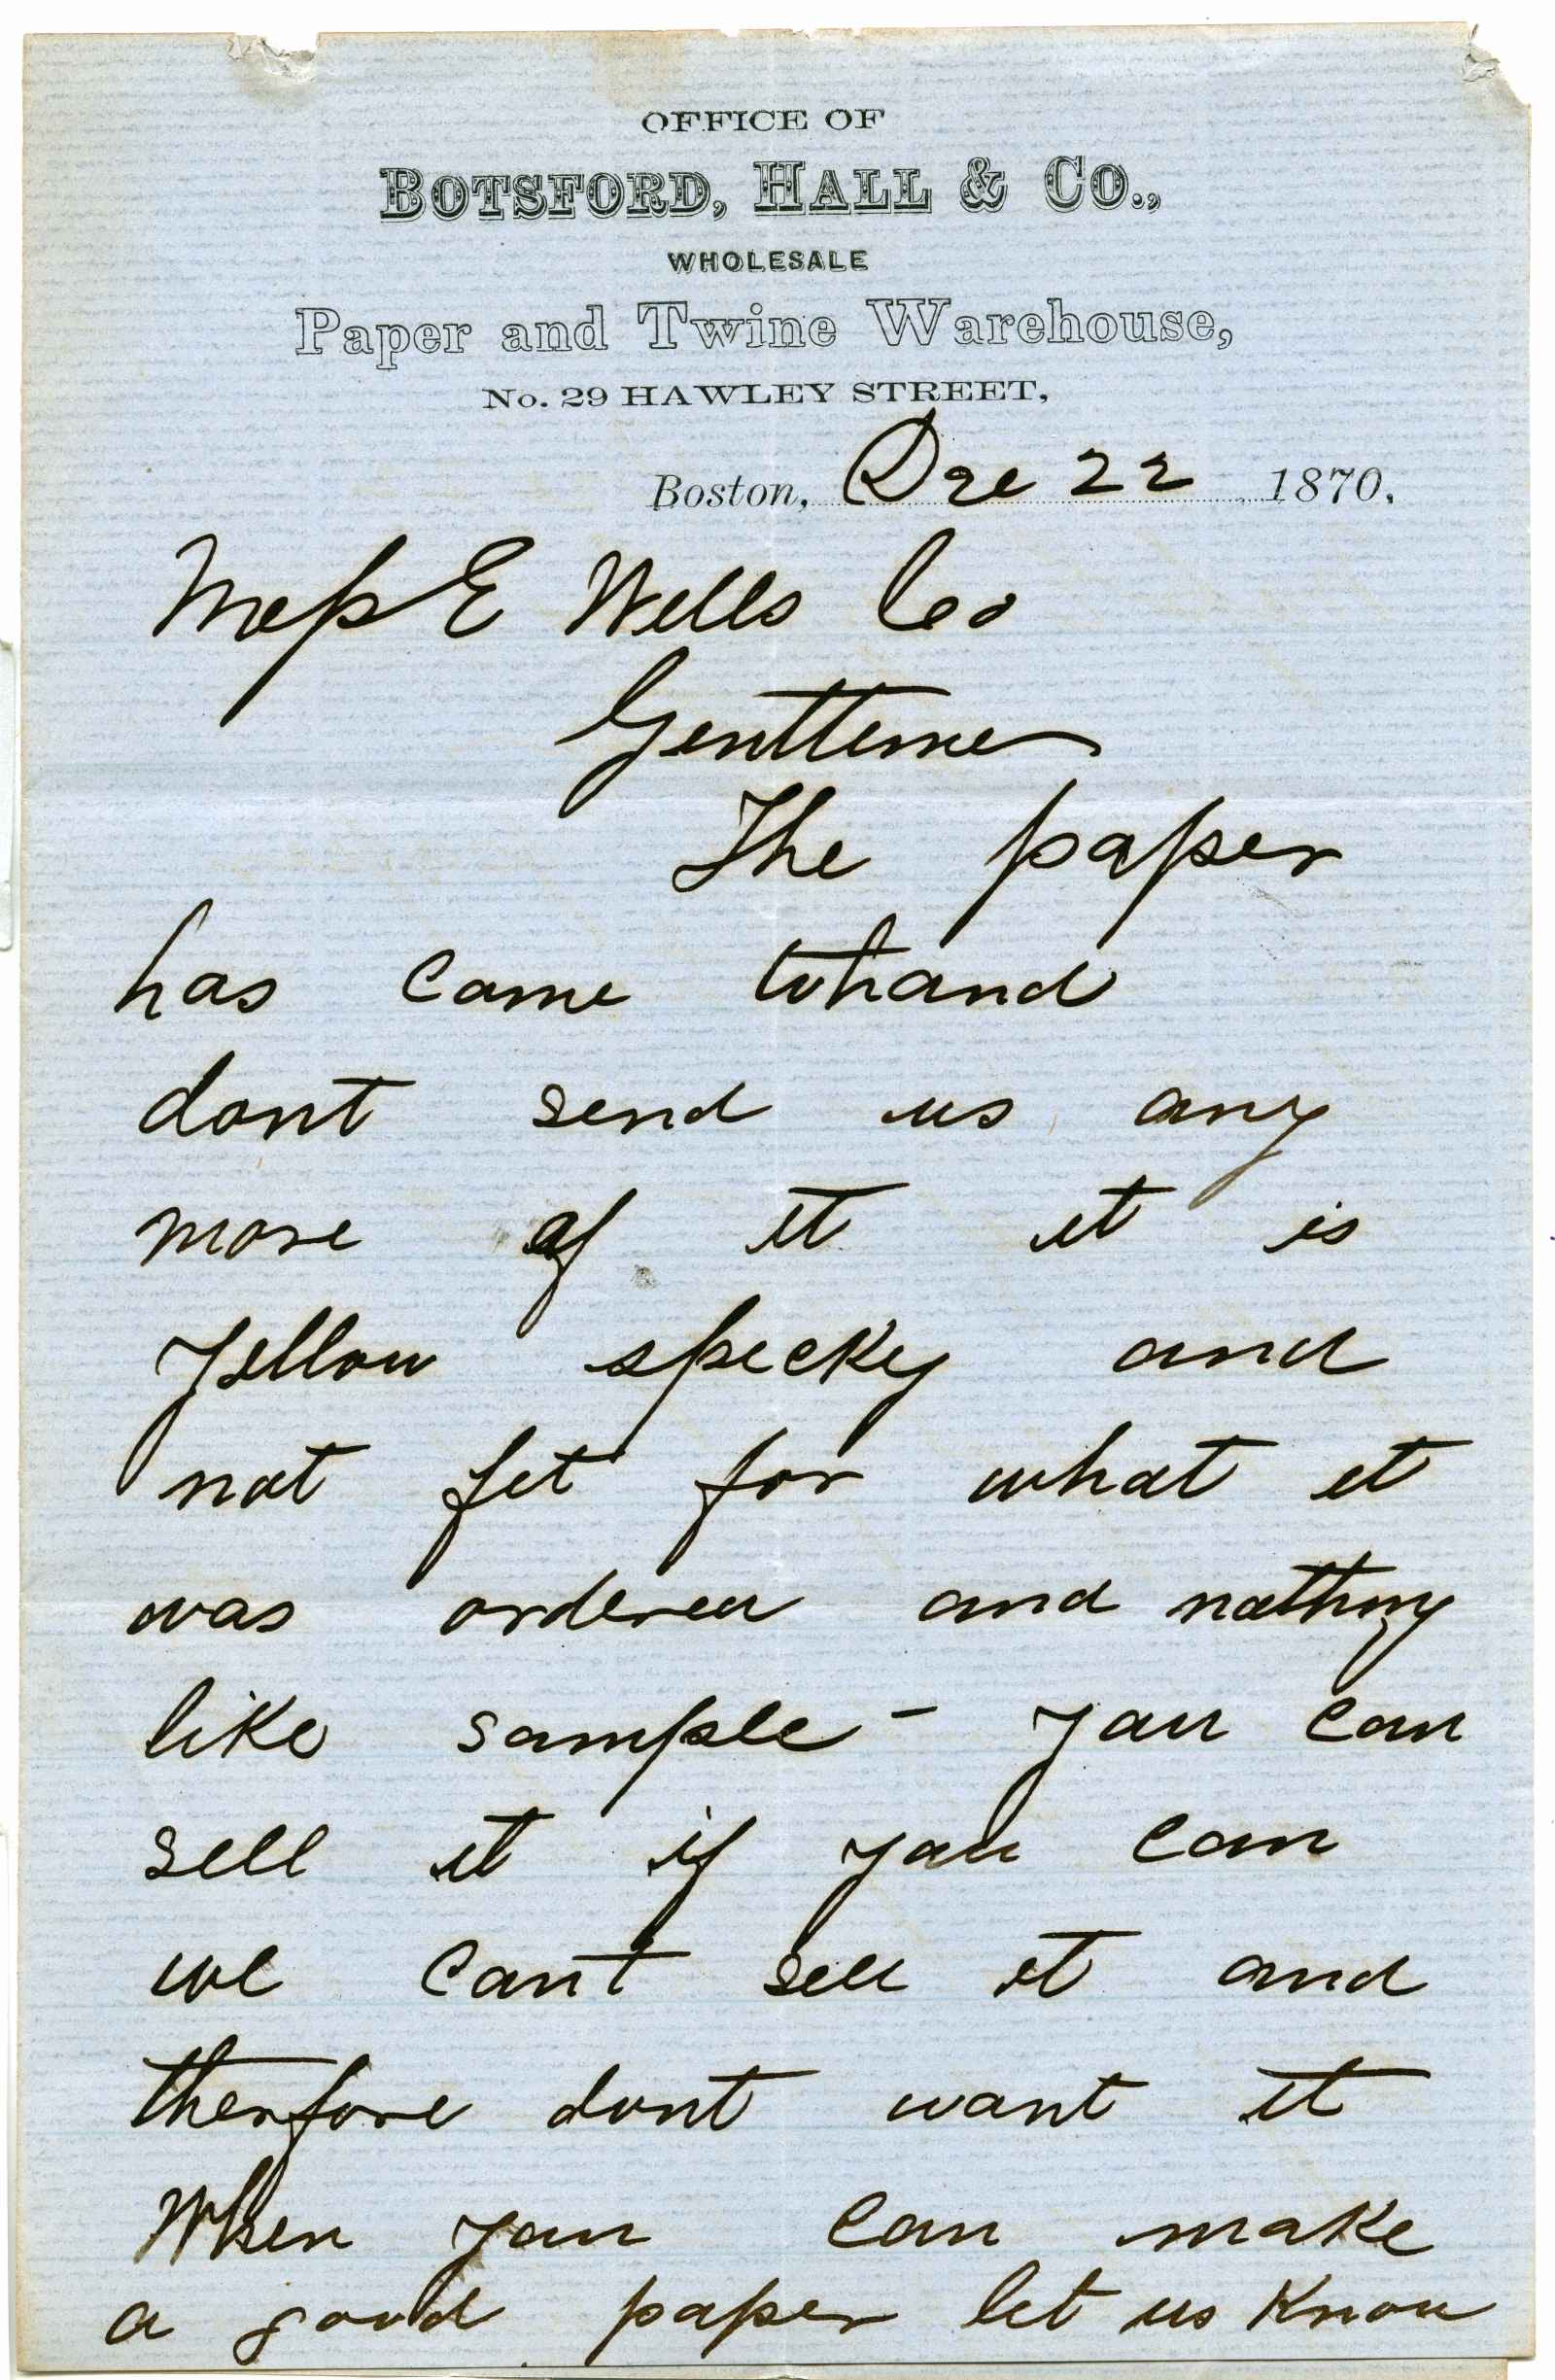 OFFICE OF
BOTSFORD, HALL & CO.,
WHOLESALE
Paper and Twine Warehouse,
No. 29 HAWLEY STREET,
Boston, Dec 22 1870.
Mess E Wells Co
Gentlemen
The paper
has came to hand
dont send us any
more of it it is
yellow specky and
not fit for what it
was ordered and nothing
like sample - you can
sell it if you can
we cant sell it and
therfore dont want it
When you can make
a good paper let us know